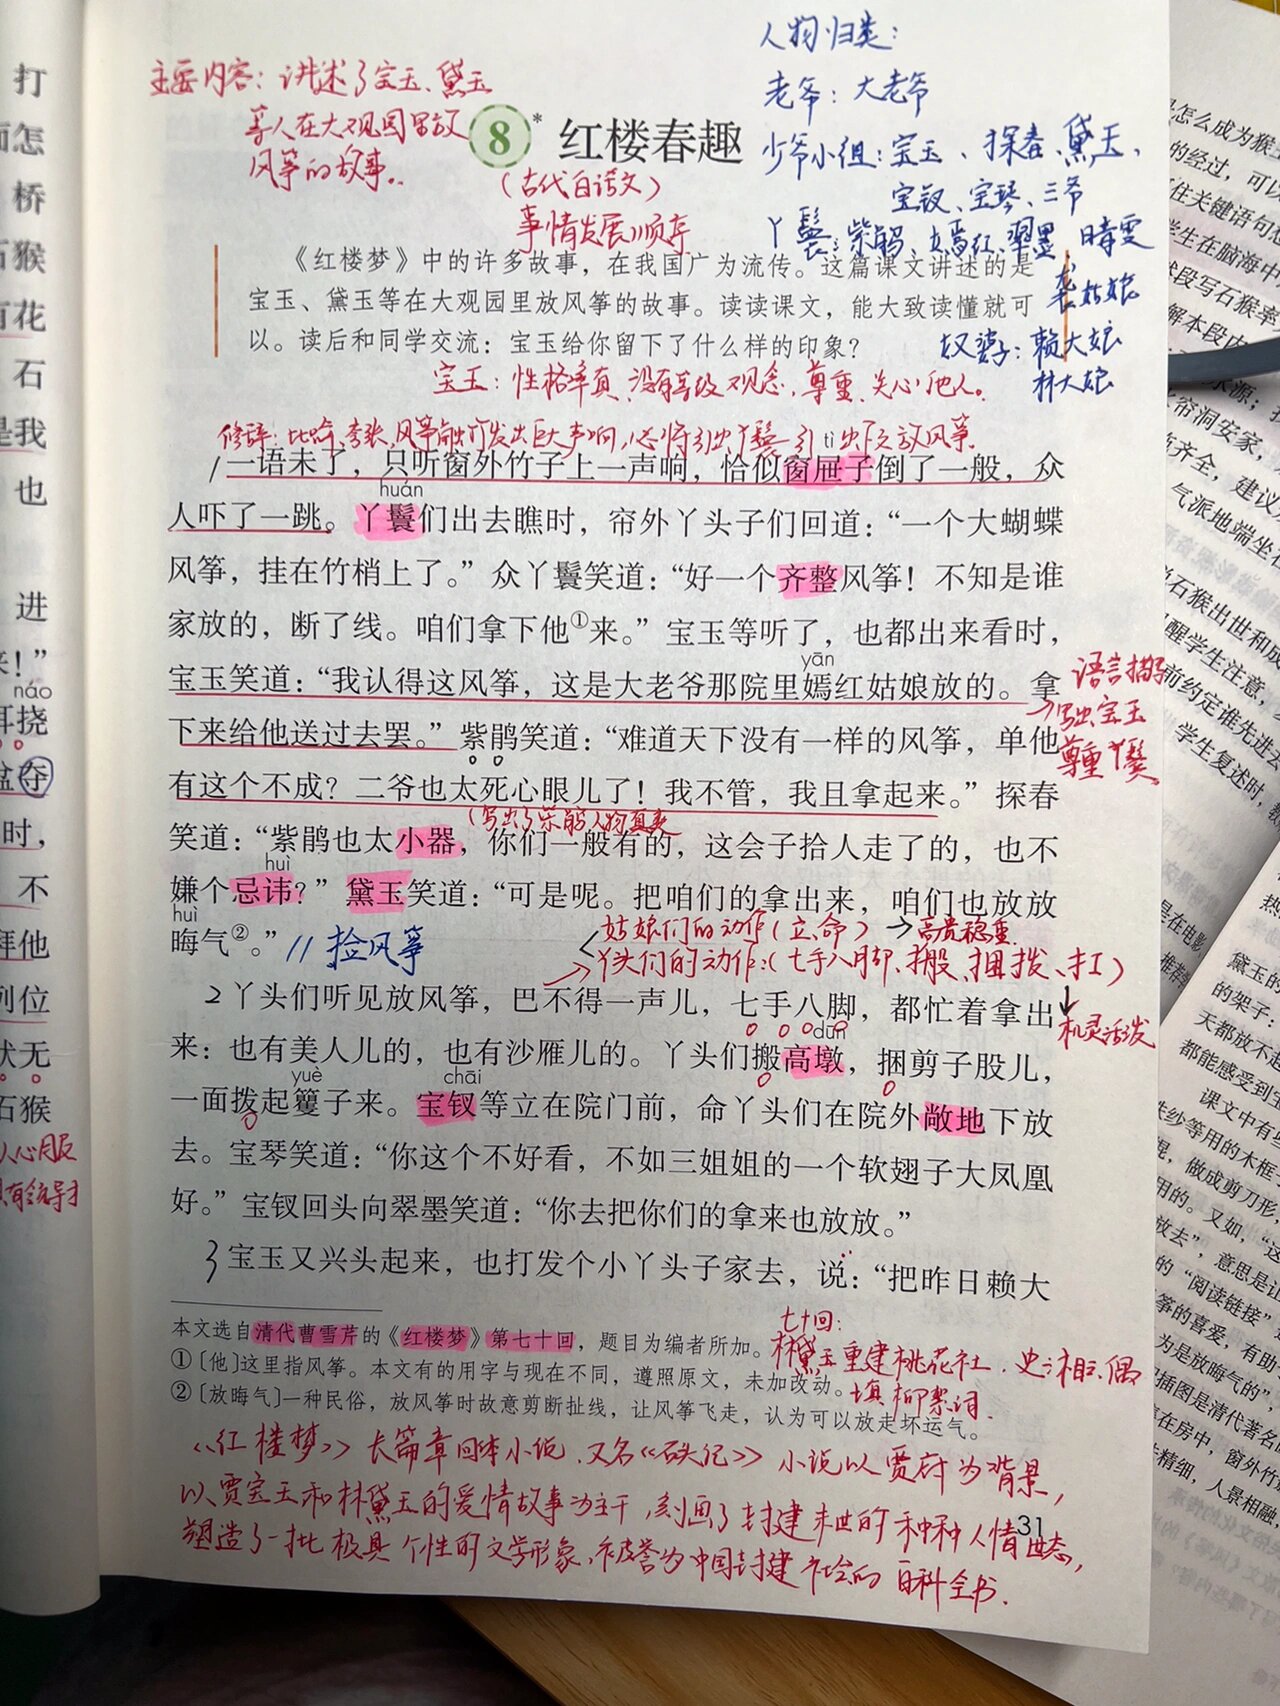 人物归类：
主要内容：讲述了宝玉、黛玉
等人在大观园里放
风筝的故事。
老爷：大老爷
8* 红楼春趣
少爷小组：宝玉、探春、黛玉、
宝钗、宝琴、三爷
丫鬟：紫鹃、嫣红、翠墨、晴雯
袭姑娘
(古代白话文)
事情发展顺序
《红楼梦》中的许多故事，在我国广为流传。这篇课文讲述的是
宝玉、黛玉等在大观园里放风筝的故事。读读课文，能大致读懂就可
以。读后和同学交流：宝玉给你留下了什么样的印象？
奴婆子：赖大娘
林大娘
宝玉：性格率真、没有等级观念、尊重、关心他人。
修辞：比喻、夸张、风筝
发出巨大声响，必将引出丫鬟
放风筝
tì
1一语未了，只听窗外竹子上一声响，恰似窗屉子倒了一般，众
huán
人吓了一跳。丫鬟们出去瞧时，帘外丫头子们回道：“一个大蝴蝶
风筝，挂在竹梢上了。”众丫鬟笑道：“好一个齐整风筝！不知是谁
家放的，断了线。咱们拿下他①来。”宝玉等听了，也都出来看时，
yān
宝玉笑道：“我认得这风筝，这是大老爷那院里嫣红姑娘放的。拿
下来给他送过去罢。”紫鹃笑道：“难道天下没有一样的风筝，单他
有这个不成？二爷也太死心眼儿了！我不管，我且拿起来。”探春
语言描写
→写出宝玉
尊重丫鬟
(写出了紫鹃人物直爽
笑道：“紫鹃也太小器，你们一般有的，这会子拾人走了的，也不
huì
嫌个忌讳？”黛玉笑道：“可是呢。把咱们的拿出来，咱们也放放
huì
晦气②。”// 捡风筝
姑娘们的动作(立、命)→高贵稳重
丫头们的动作：(七手八脚、搬、捆、拨、扛)
机灵活泼
2丫头们听见放风筝，巴不得一声儿，七手八脚，都忙着拿出
dūn
来：也有美人儿的，也有沙雁儿的。丫头们搬高墩，捆剪子股儿，
yuè chāi
一面拨起籰子来。宝钗等立在院门前，命丫头们在院外敞地下放
去。宝琴笑道：“你这个不好看，不如三姐姐的一个软翅子大凤凰
好。”宝钗回头向翠墨笑道：“你去把你们的拿来也放放。”
3宝玉又兴头起来，也打发个小丫头子家去，说：“把昨日赖大
本文选自清代曹雪芹的《红楼梦》第七十回，题目为编者所加。
①〔他〕这里指风筝。本文有的用字与现在不同，遵照原文，未加改动。
②〔放晦气〕一种民俗，放风筝时故意剪断扯线，让风筝飞走，认为可以放走坏运气。
七十回：
林黛玉重建桃花社．史湘云偶
填柳絮词．
《红楼梦》长篇章回体小说．又名《石头记》小说以贾府为背景，
以贾宝玉和林黛玉的爱情故事为主干，刻画了封建末世的种种人情世态，
塑造了一批极具个性的文学形象，被誉为中国封建社会的百科全书．
31
打
怎
桥
石猴
花
石
是我
也
进
来！”
náo
耳挠
盆夺
时，
不
拜他
列位
伏无
石猴
怎么成为猴王
的经过，可以
住关键语句想
学生在脑海中
段写石猴牵
解本段内
水源；
帘洞安家，
齐全，建议
气派地端坐在
石猴出世和成
醒学生注意，
前约定谁先进去
学生复述时，
是在电影
黛玉的
的架子：
天都放不起
都能感受到宝
课文中有些
纱等用的木框子
做成剪刀形，
用的。又如，“这
放去”，意思是让
的“阅读链接”
筝的喜爱，有助
为是放晦气的”，
插图是清代著名
在房中，窗外竹
精细，人景相融，